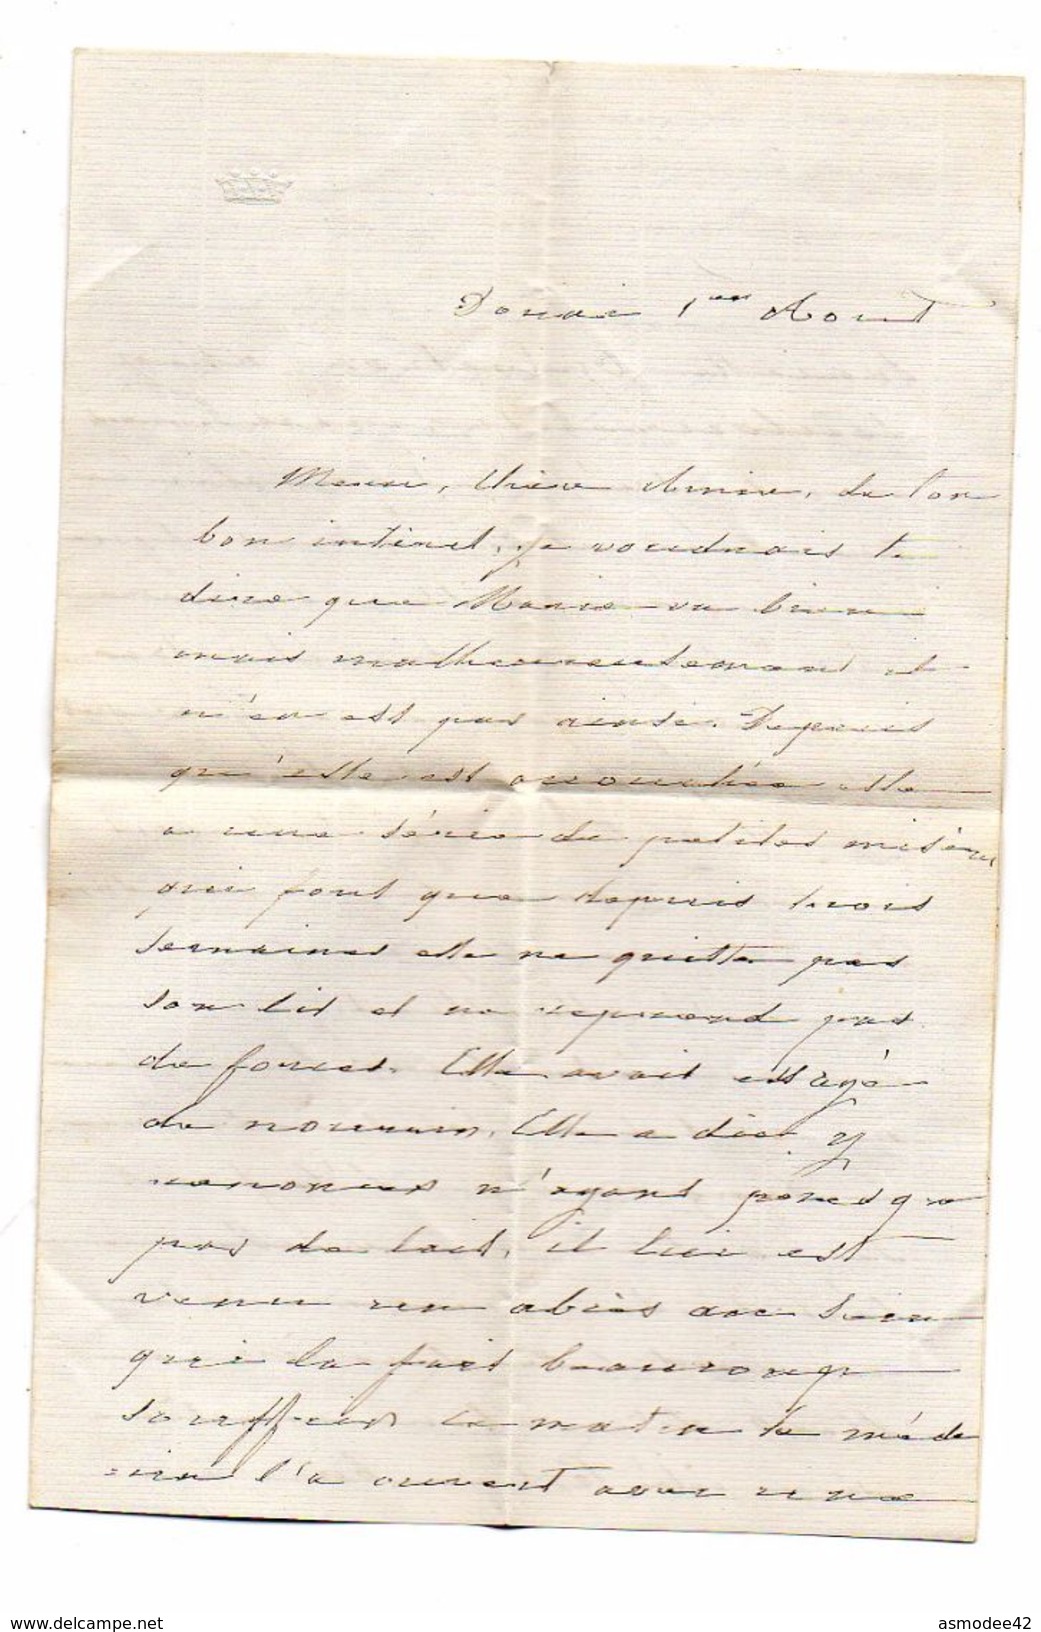 Douai 1er Aout
Merci, chère Annie, de ton
bon intéret, je voudrais te
dire que Marie va bien
mais malheureusement il
n'en est pas ainsi. Depuis
qu'elle est accouchée elle
a une série de petites misères
qui font que depuis trois
semaines elle ne quitte pas
son lit et ne reprend pas
de forces. Elle avait essayé
de nourrir. Elle a dut y
renoncer n'ayant presque
pas de lait, il lui est
venu un abcès au sein
qui la fait beaucoup
souffrir ce matin le méde
cin l'a ouvert avec une
www.delcampe.net
asmodee42